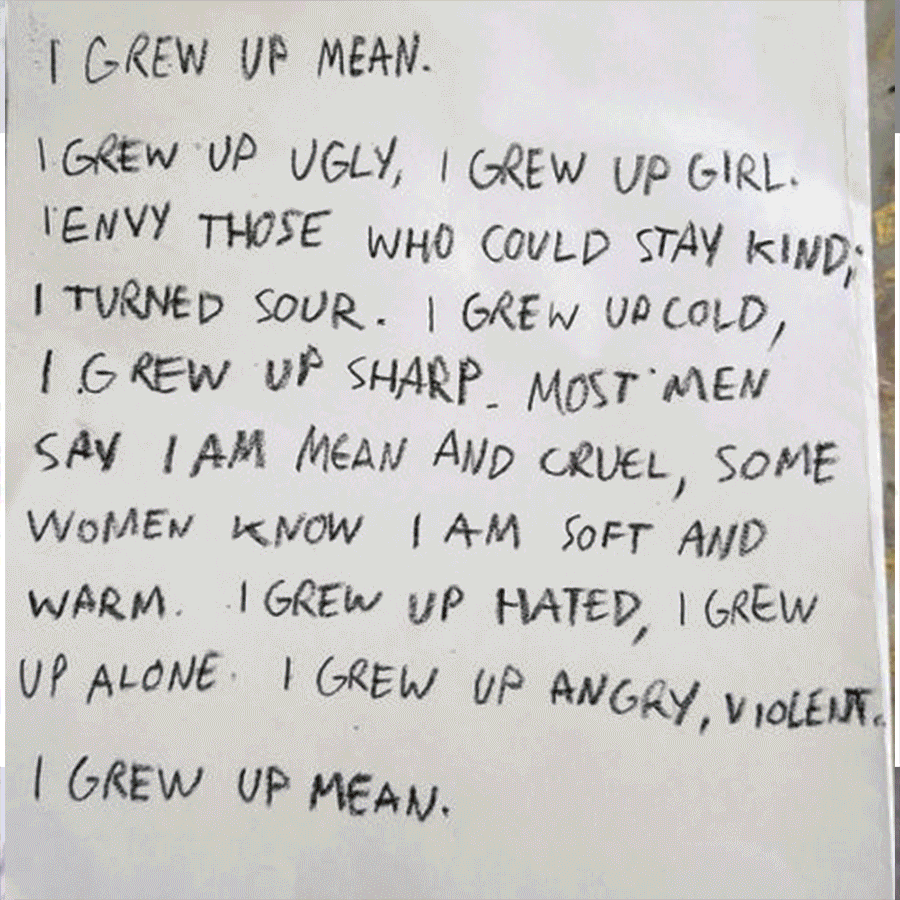 I GREW UP MEAN.
I GREW UP UGLY, I GREW UP GIRL.
I ENVY THOSE WHO COULD STAY KIND;
I TURNED SOUR. I GREW UP COLD,
I GREW UP SHARP. MOST MEN
SAY I AM MEAN AND CRUEL, SOME
WOMEN KNOW I AM SOFT AND
WARM. I GREW UP HATED, I GREW
UP ALONE. I GREW UP ANGRY, VIOLENT.
I GREW UP MEAN.